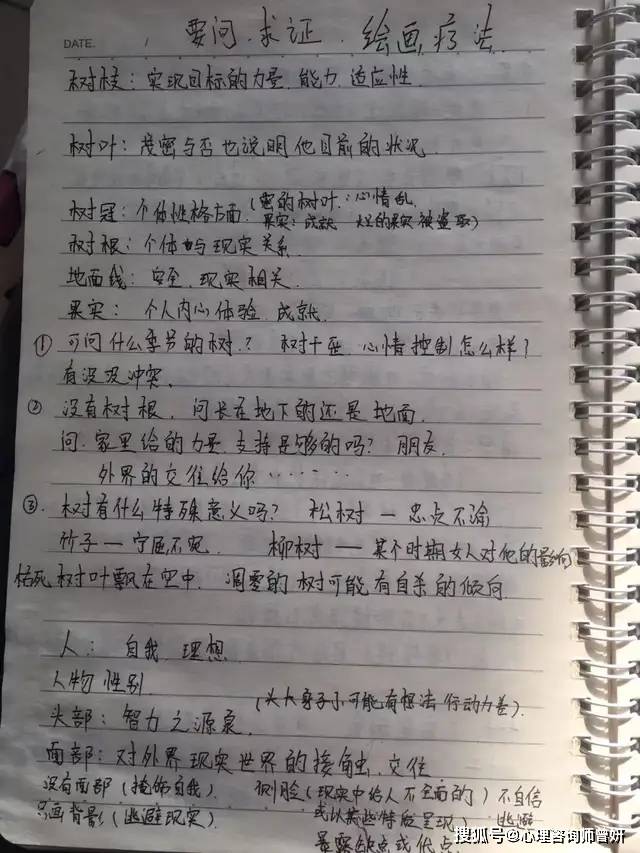 DATE. / 要问.求证.绘画疗法
树枝：实现目标的力量.能力.适应性.
树叶：茂密与否也说明他目前的状况
树冠：个体性格方面.(密的树叶：心情乱.
果实：成就 烂的果实被盗取)
树根：个体与现实关系.
地面线：安全.现实相关.
果实：个人内心体验.成就.
① 可问什么季节的树.？ 树干歪.心情控制怎么样？
有没及冲突.
② 没有树根.问长在地下的还是地面.
问.家里给的力量.支持足够的吗？朋友.
外界的交往给你……
③. 树有什么特殊意义吗？ 松树—忠贞不渝
竹子—宁屈不宛. 柳树——某个时期女人对他的影响
枯死树叶飘在空中.凋零的树可能有自杀的倾向.
人：自我 理想.
人物性别.
(头大身子小可能有想法行动力差).
头部：智力之源泉.
面部：对外界现实世界的接触.交往
没有面部(掩饰自我). 侧脸(现实中给人不全面的)不自信
只画背影(逃避现实). 或以某些特征呈现) 逃避
暴露缺点或优点
搜狐号@心理咨询师曾妍